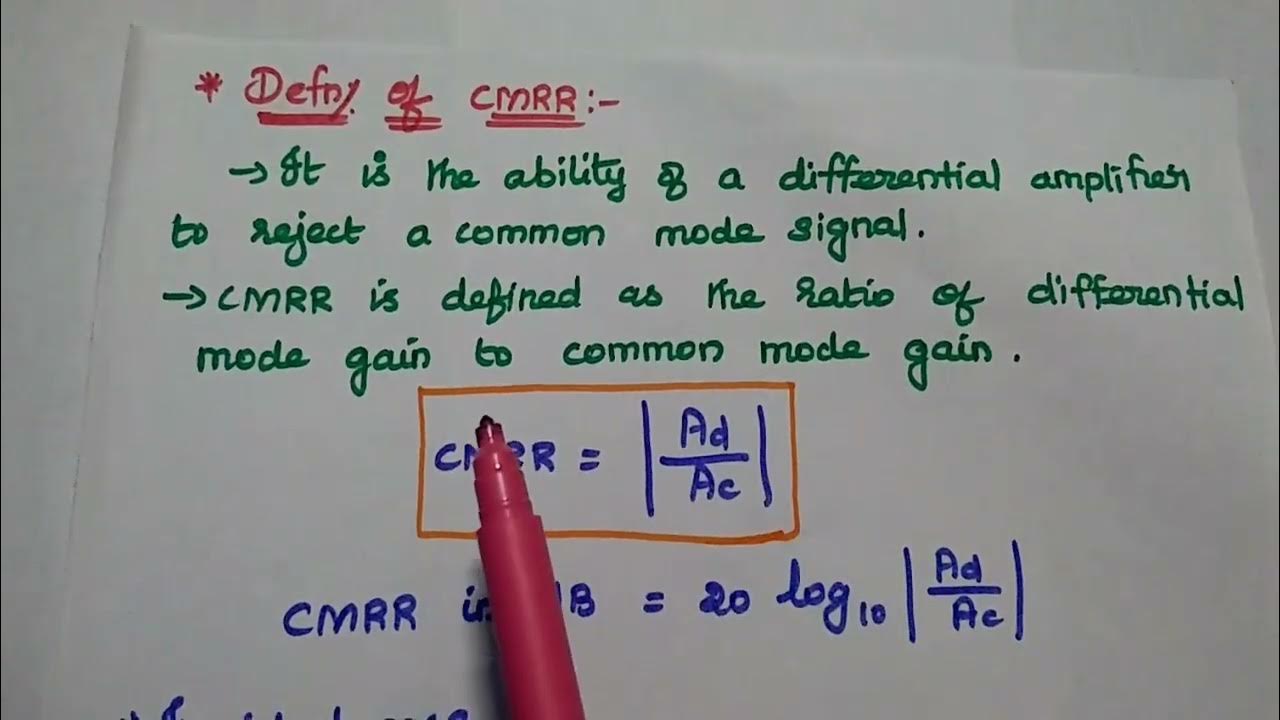 * Defny of CMRR:-
→ It is the ability of a differential amplifier
to reject a common mode signal.
→ CMRR is defined as the ratio of differential
mode gain to common mode gain.
CMRR = |Ad/Ac|
CMRR in dB = 20 log₁₀ |Ad/Ac|